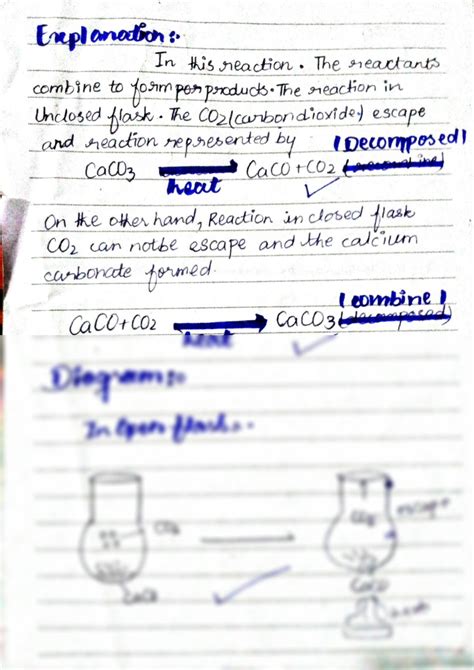 Explanation :-
In this reaction. The reactants
combine to form products. The reaction in
Unclosed flask. The CO2 (carbondioxide) escape
and reaction represented by
(Decomposed)
CaCO3 CaCO + CO2
heat
On the other hand, Reaction in closed flask
CO2 can notbe escape and the calcium
carbonate formed.
(combine)
CaCO + CO2 CaCO3 (decomposed)
heat
Diagram:-
In Open flask:-
CO2 CO2 escape
CaCO3
CaCO